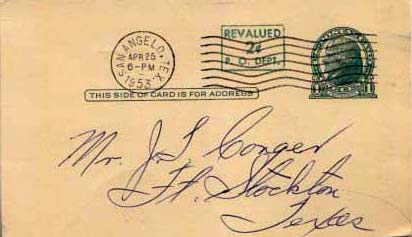 SAN ANGELO, TEX.
APR 25
6-PM
1953
REVALUED
2¢
P. O. DEPT.
THIS SIDE OF CARD IS FOR ADDRESS
1 1
Mr. J L Conger
Ft. Stockton
Texas